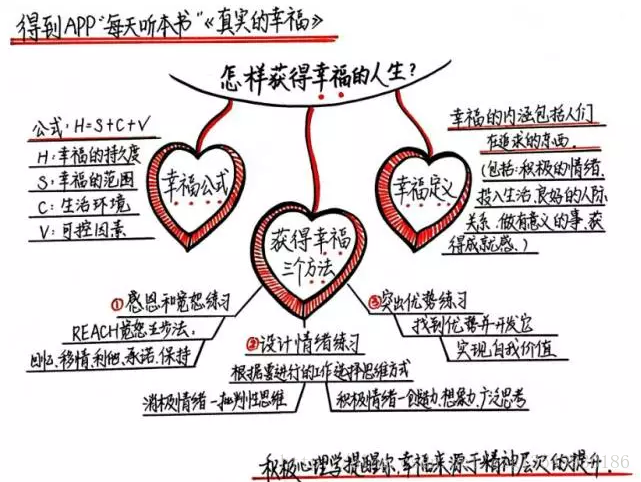 得到APP“每天听本书”《真实的幸福》
怎样获得幸福的人生?
公式:H=S+C+V
H:幸福的持久度
S:幸福的范围
C:生活环境
V:可控因素
幸福公式
获得幸福
三个方法
幸福定义
幸福的内涵包括人们
在追求的东西.
(包括:积极的情绪,
投入生活、良好的人际
关系、做有意义的事、获
得成就感.)
①感恩和宽恕练习
REACH宽恕五步法:
回忆,移情,利他,承诺,保持
②设计情绪练习
根据要进行的工作选择思维方式
消极情绪—批判性思维
积极情绪—创造力,想象力,广泛思考
③突出优势练习
找到优势并开发它
实现自我价值
积极心理学提醒你,幸福来源于精神层次的提升.